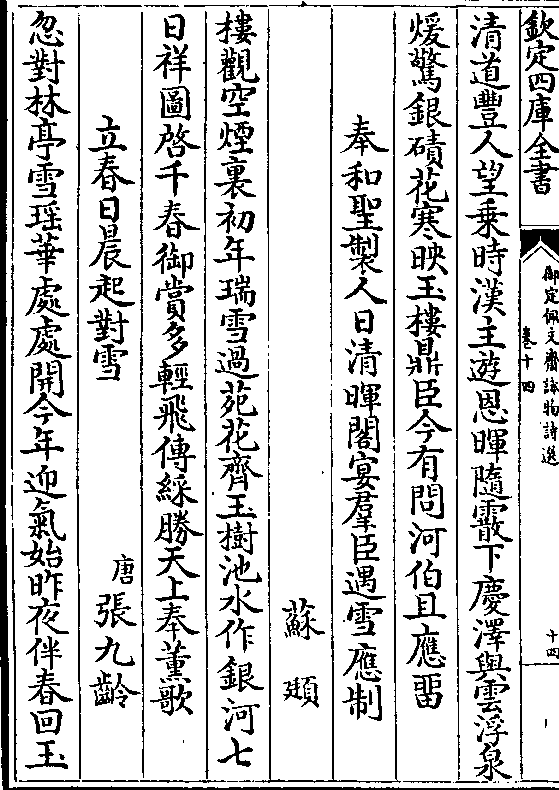 欽定四庫全書
御定佩文齋詠物詩選
卷十四
十四
清道豐人望乗時漢主遊恩暉隨霰下慶澤與雲浮泉
煖驚銀磧花寒映玉樓鼎臣今有問河伯且應畱
奉和聖製人日清暉閣宴羣臣遇雪應制
蘇頲
樓觀空煙裏初年瑞雪過苑花齊玉樹池水作銀河七
日祥圖啓千春御賞多輕飛傳綵勝天上奉薰歌
立春日晨起對雪
唐張九齡
忽對林亭雪瑶華處處開今年迎氣始昨夜伴春回玉